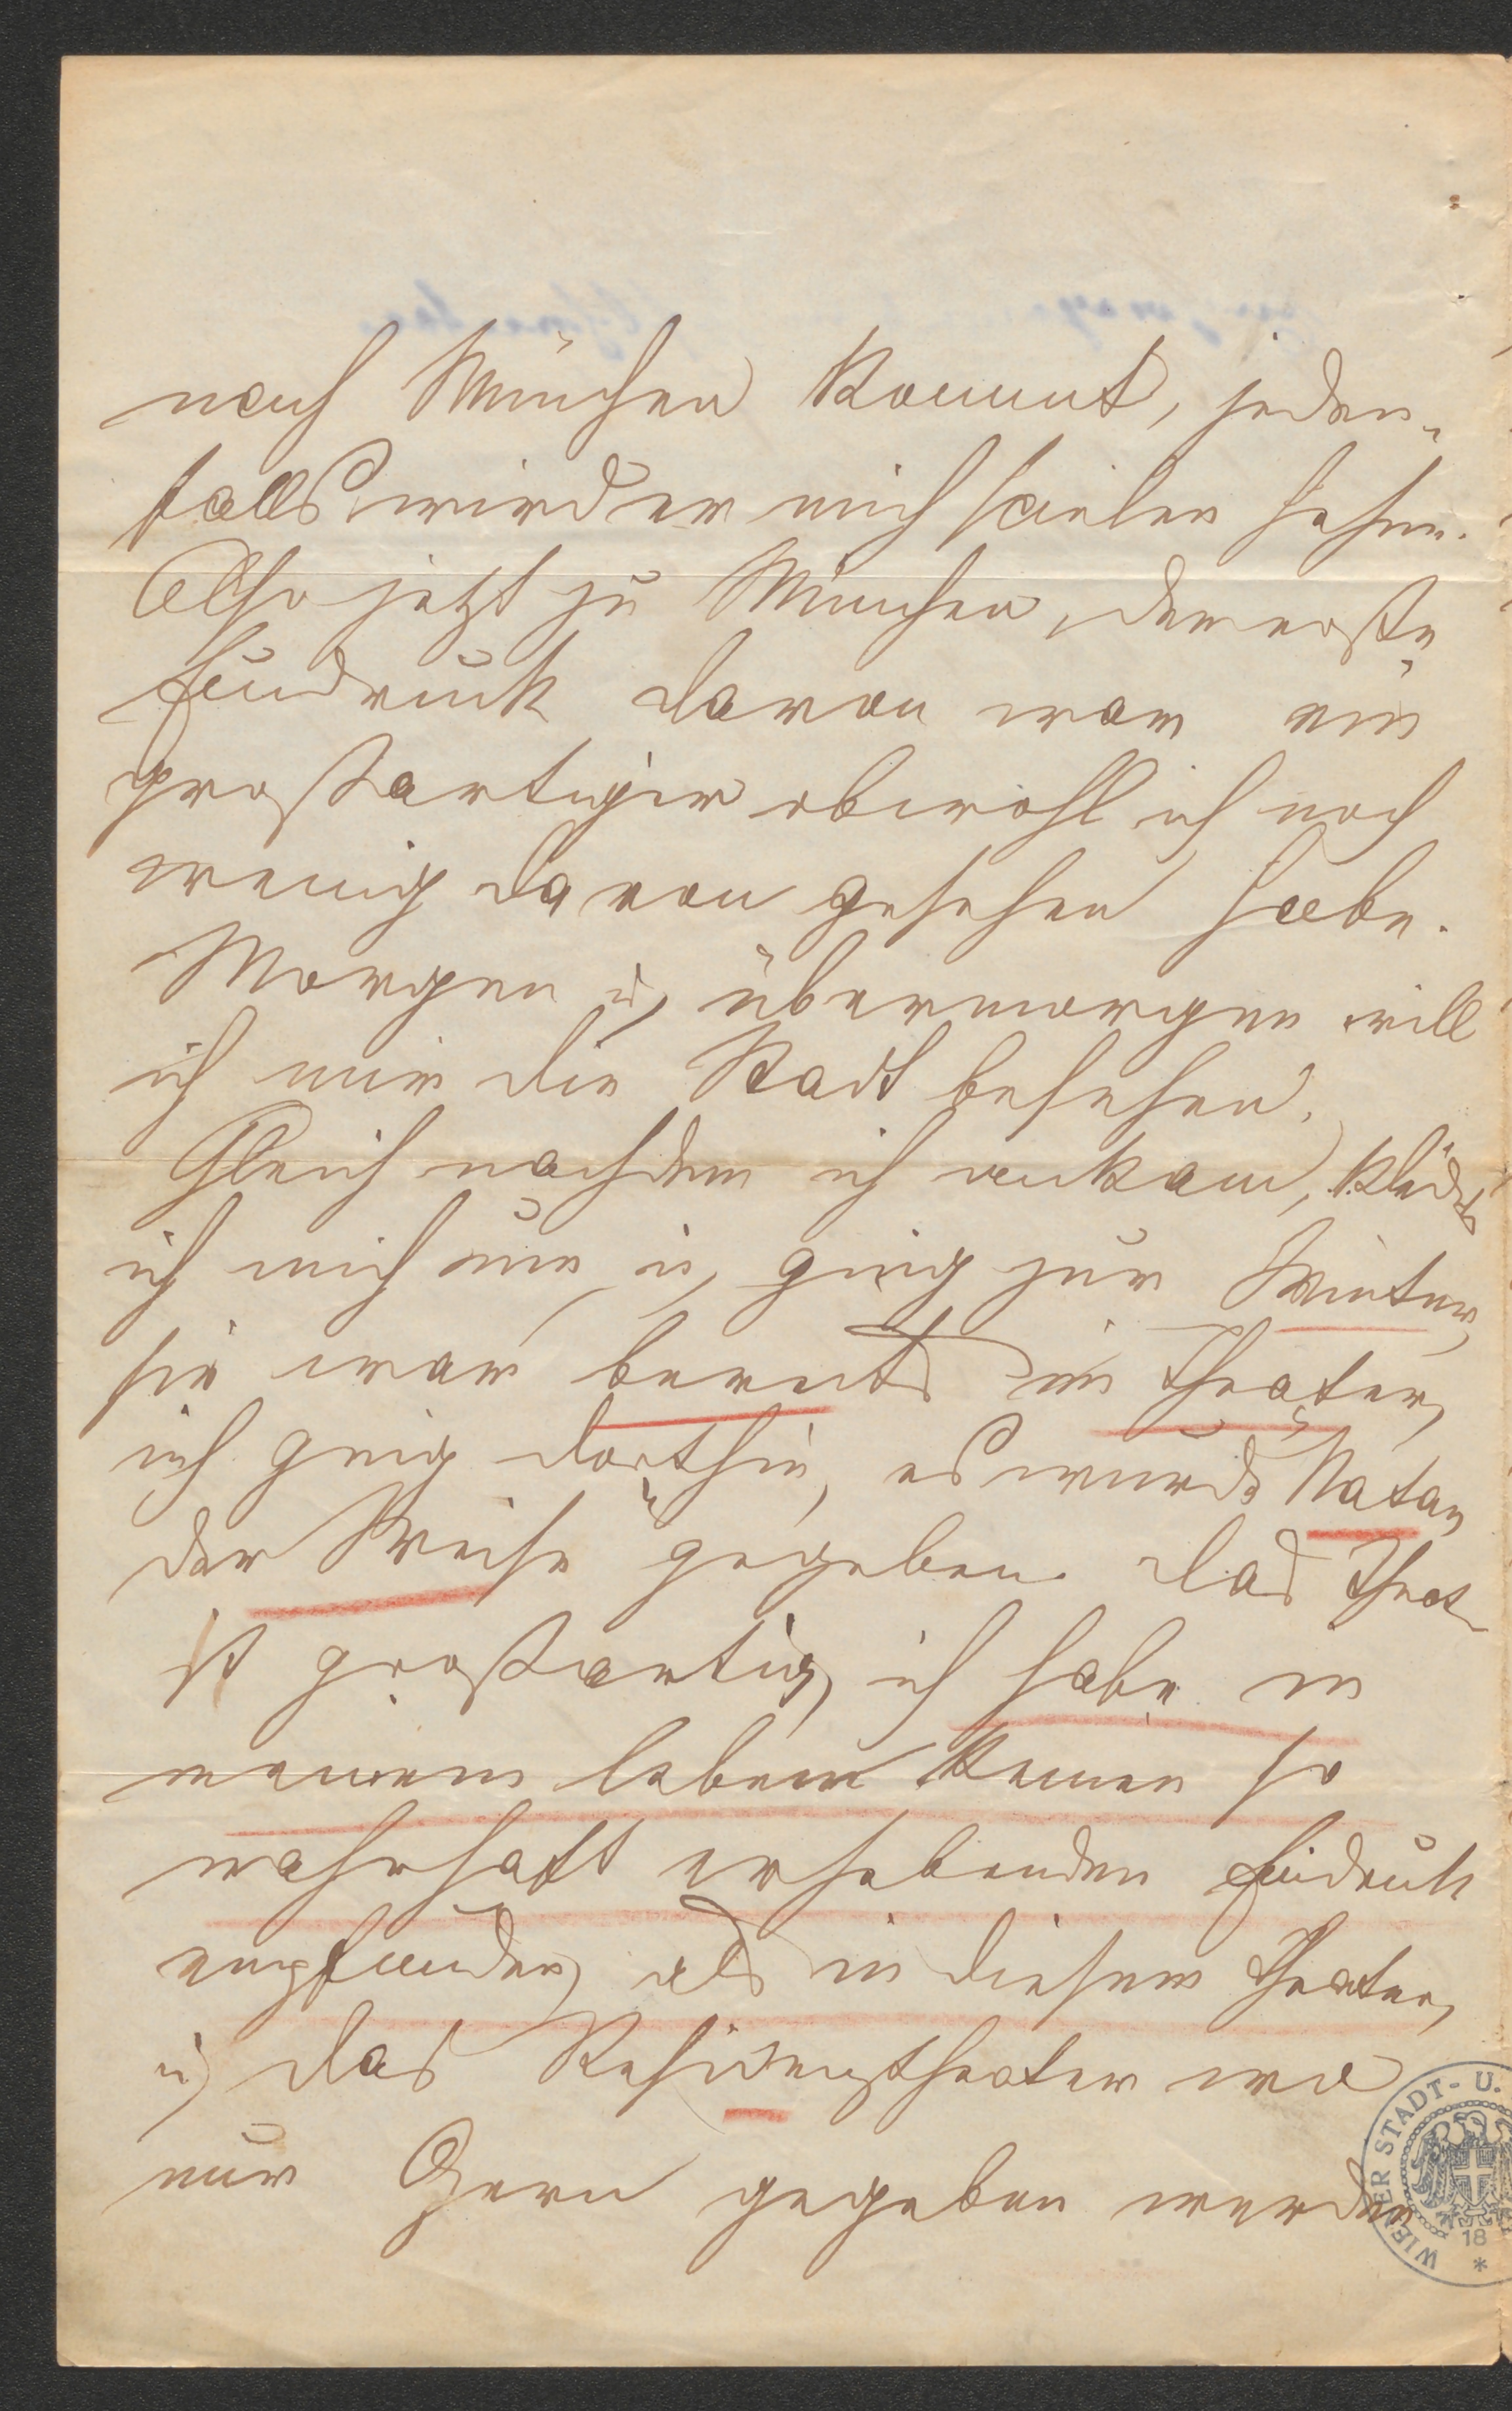 nach München kommt, jeden-
falls wird er mich spielen sehen.
Also jetzt zu München, der erste
Eindruck davon war ein
großartiger obwohl ich noch
wenig davon gesehen habe.
Morgen u. übermorgen will
ich mir die Stadt besehen.
Gleich nachdem ich ankam, kleidet
ich mich um u. ging zur Winter,
sie war bereits im Theater,
ich ging dorthin, es wurde Natan
der Weise gegeben. Das Theat
ist großartig, ich habe in
meinem Leben keinen so
wahrhaft erhebenden Eindruck
empfunden, als in diesem Theater,
u. das Residenztheater wo
nur gegeben werden
WIENER STADT- U.
18